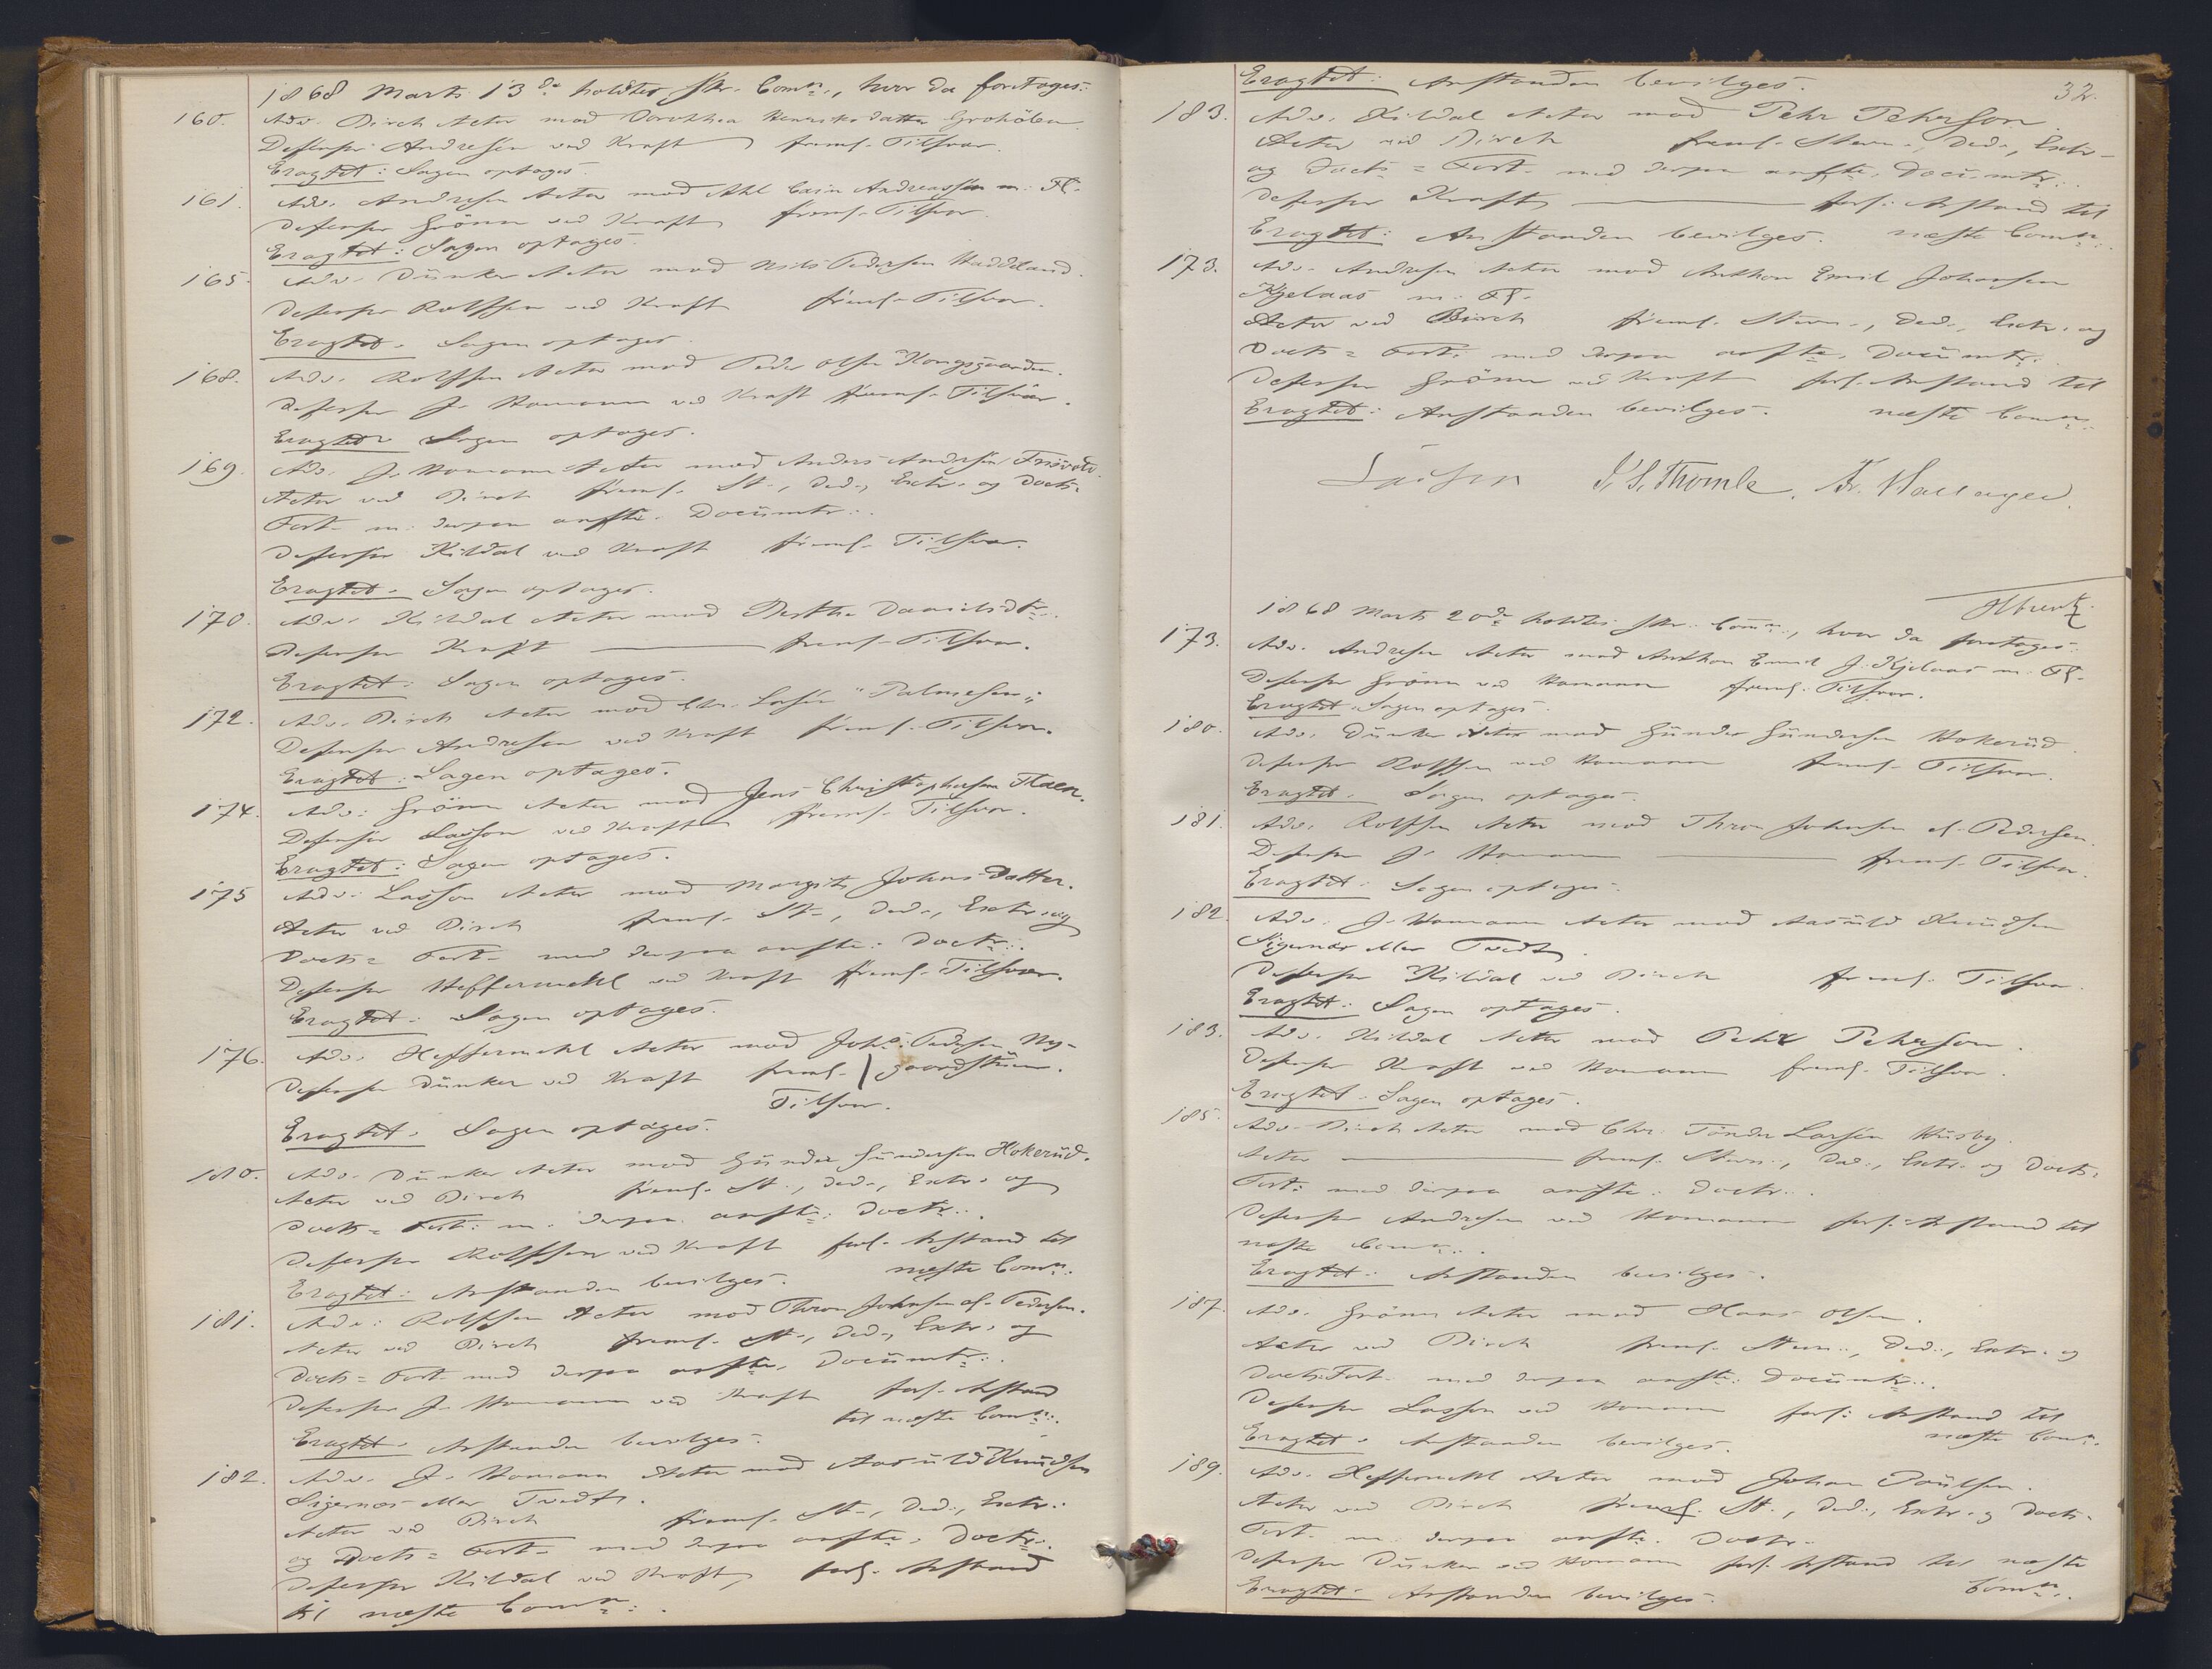 1868 Marts 13de holdtes skr. Comn:, hvor da foretages:
160. Adv. Birch Actor mod Dorothea Henriksdatter Grohölen
Defensor Andresen ved Kraft freml. Tilsvar.
Eragtet: Sagen optages.
161. Adv. Andresen Actor mod Andreassen m: Fl.
Defensor Grönn ved Kraft freml. Tilsvar.
Eragtet: Sagen optages.
165. Adv. Dunker Actor mod Nils Pedersen Haddeland.
Defensor Rolfsen ved Kraft freml. Tilsvar.
Eragtet: Sagen optages.
168. Adv. Rolfsen Actor mod Peder Olsen Kongsgaarden.
Defensor J. Homann ved Kraft freml. Tilsvar.
Eragtet Sagen optages.
169. Adv. J. Homann Actor mod Anders Andersen
Actor ved Birch freml. St., Ded., Extr. og Docts.
Fort. m. derpaa anfte. Documtr:.
Defensor Kildal ved Kraft freml. Tilsvar.
Eragtet. Sagen optages.
170. Adv. Kildal Actor mod Berthe Danielsdtr:
Defensor Kraft ——— freml. Tilsvar.
Eragtet: Sagen optages.
172. Adv. Birch Actor mod Chr. Larsen "Palmesen"
Defensor Andresen ved Kraft freml. Tilsvar.
Eragtet: Sagen optages.
174. Adv: Grönn Actor mod Jens Christophersen Flaen.
Defensor Lasson ved Kraft freml. Tilsvar.
Eragtet: Sagen optages.
175 Adv: Lasson Actor mod Margith Johns Datter.
Actor ved Birch freml. St., Ded., Extr. og
Docts= Fort. med derpaa anfte: Doctr:.
Defensor Heffermehl ved Kraft freml. Tilsvar.
Eragtet: Sagen optages.
176. Adv. Heffermehl Actor mod Johs. Pedersen Ny-
Defensor Dunker ved Kraft freml. / gaardstuen.
Tilsvar.
Eragtet. Sagen optages.
180. Adv. Dunker Actor mod Gunder Gundersen Hokerud.
Actor ved Birch freml. St., Ded., Extr. og
Docts= Fort: m. derpaa anfte: Doctr:.
Defensor Rolfsen ved Kraft forl. Anstand til
næste Comn:
Eragtet: Anstanden bevilges.
181. Adv: Rolfsen Actor mod Thron Johnsen el. Pedersen.
Actor ved Birch freml. St., Ded., Extr. og
Docts= Fort. med derpaa anfte. Documtr:.
Defensor J. Homann ved Kraft forl. Anstand
til næste Comn:.
Eragtet. Anstanden bevilges.
182. Adv. J. Homann Actor mod Aasuld Knudsen
Sigernæs eller Tvedt.
Actor ved Birch freml. St., Ded., Extr:
og Docts= Fort. med derpaa anfte. Doctr:.
Defensor Kildal ved Kraft, forl. Anstand
til næste Comn:.
32.
Eragtet: Anstanden bevilges.
183. Adv. Kildal Actor mod Pehr Pehrson
Actor ved Birch freml. Stevn., Ded., Extr.
og Docts= Fort. med derpaa anfte. Documtr:.
Defensor Kraft ——— forl: Anstand til
Eragtet: Anstanden bevilges. næste Comn:.
173. Adv. Andresen Actor mod Anthon Emil Johansen
Kjelaas m. Fl.
Actor ved Birch freml. Stevn., Ded., Extr. og
Docts= Fort. med derpaa anfte. Documtr:.
Defensor Grönn ved Kraft forl. Anstand til
Eragtet: Anstanden bevilges. næste Comn:.
Lasson Thomle. Fr. Hallager.
1868 Marts 20de holdtes skr. Comn:, hvor da foretages:
173. Adv. Andresen Actor mod Anthon Emil J. Kjelaas m. Fl.
Defensor Grönn ved Homann freml. Tilsvar.
Eragtet. Sagen optages.
180. Adv. Dunker Actor mod Gunder Gundersen Hokerud.
Defensor Rolfsen ved Homann freml. Tilsvar.
Eragtet. Sagen optages.
181. Adv. Rolfsen Actor mod Thron Johnsen el. Pedersen.
Defensor J. Homann ——— freml. Tilsvar.
Eragtet: Sagen optages.
182. Adv. J. Homann Actor mod Aasuld Knudsen
Sigernæs eller Tvedt.
Defensor Kildal ved Birch freml. Tilsvar.
Eragtet: Sagen optages.
183. Adv. Kildal Actor mod Pehr Pehrson.
Defensor Kraft ved Homann freml. Tilsvar.
Eragtet. Sagen optages.
185. Adv. Birch Actor mod Chr. Tönder Larsen Husby.
Actor ——— freml. Stevn:, Ded:, Extr. og Docts.
Fort: med derpaa anfte: Doctr:.
Defensor Andresen ved Homann forl: Anstand til
næste Comn:.
Eragtet: Anstanden bevilges.
187. Adv. Grönn Actor mod Hans Olsen.
Actor ved Birch freml. Stevn:, Ded:, Extr. og
Docts: Fort. med derpaa anfte: Documtr:.
Defensor Lasson ved Homann forl: Anstand til
næste Comn:.
Eragtet. Anstanden bevilges.
189. Adv. Heffermehl Actor mod Johan Poulsen.
Actor ved Birch freml. St., Ded., Extr. og Docts.
Fort. m. derpaa anfte. Doctr:.
Defensor Dunker ved Homann forl. Anstand til næste
Comn:.
Eragtet. Anstanden bevilges.